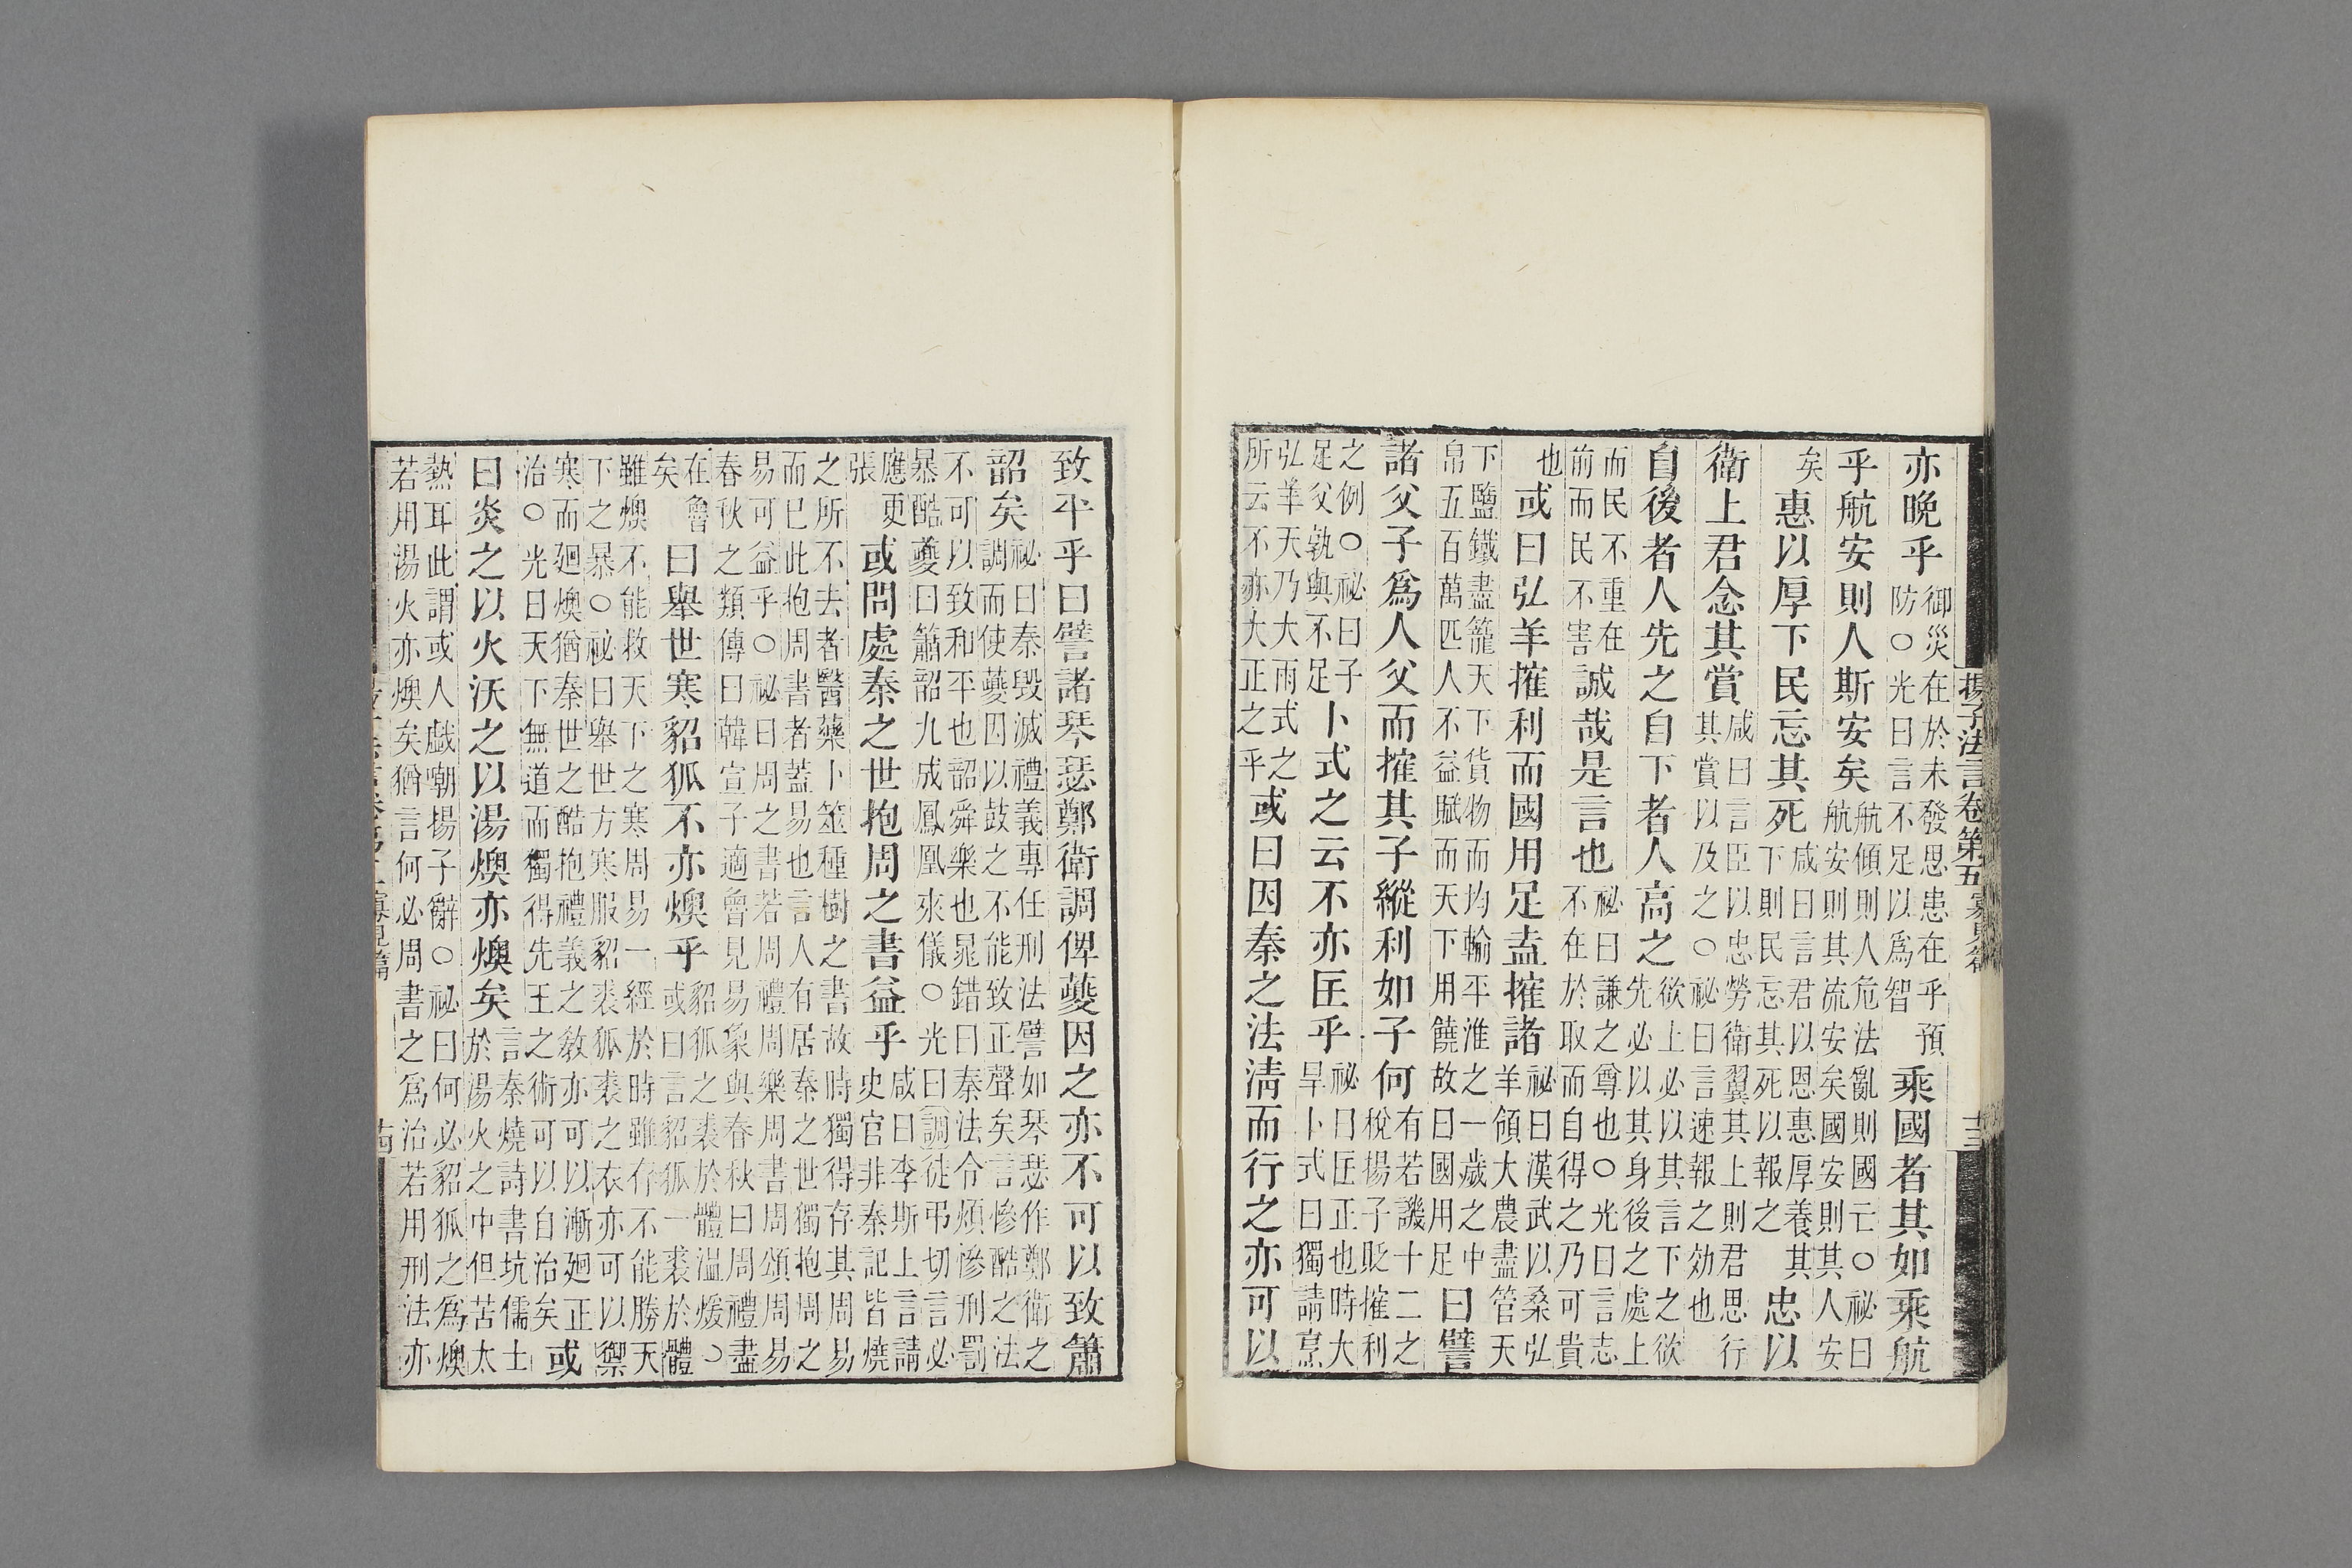 揚子法言卷第五
十三
亦晩乎御災在於未發思患在乎預防○光曰言不足以爲智乘國者其如乘航
乎航安則人斯安矣航傾則人危法亂則國亡○祕曰航安則其流安矣國安則其人安
矣惠以厚下民忘其死咸曰言君以恩惠厚養其下則民忘其死以報之忠以
衛上君念其賞咸曰言臣以忠勞衛翼其上則君思行其賞以及之○祕曰言速報之効也
自後者人先之自下者人高之欲上必以其言下之欲先必以其身後之處上
而民不重在前而民不害誠哉是言也祕曰謙之尊也○光曰言志不在於取而自得之乃可貴
也或曰弘羊搉利而國用足盍搉諸祕曰漢武以桑弘羊領大農盡管天
下鹽鐵盡籠天下貨物而均輸平淮之一歲之中帛五百萬匹人不益賦而天下用饒故曰國用足曰譬
諸父子爲人父而搉其子縱利如子何有若譏十二之稅揚子貶搉利
之例○祕曰子足父孰與不足卜式之云不亦匡乎祕曰匡正也時大旱卜式曰獨請烹
弘羊天乃大雨式之所云不亦大正之乎或曰因秦之法淸而行之亦可以
致平乎曰譬諸琴瑟鄭衛調俾夔因之亦不可以致簫
韶矣祕曰秦毁滅禮義專任刑法譬如琴瑟作鄭衛之調而使夔因以鼓之不能致正聲矣言慘酷之法
不可以致和平也韶舜樂也晁錯曰秦法令煩慘刑罰暴酷夔曰簫韶九成鳳凰來儀○光曰調徒弔切言必
應更張或問處秦之世抱周之書益乎咸曰李斯上言請史官非秦記皆燒
之所不去者醫藥卜筮種樹之書故時獨得存其周易而已此抱周書者蓋易也言人有居秦之世獨抱周之
易可益乎○祕曰周之書若周禮周樂周書周頌周易春秋之類傳曰韓宣子適魯見易象與春秋曰周禮盡
在魯矣曰舉世寒貂狐不亦燠乎貂狐之裘於體溫煖○或曰言貂狐一裘於體
雖燠不能救天下之寒周易一經於時雖存不能勝天下之暴○祕曰舉世方寒服貂裘狐裘之衣亦可以禦
寒而廻燠猶秦世之酷抱禮義之敎亦可以漸廻正治○光曰天下無道而獨得先王之術可以自治矣或
曰炎之以火沃之以湯燠亦燠矣言秦燒詩書坑儒士於湯火之中但苦太
熱耳此謂或人戲嘲揚子辭○祕曰何必貂狐之爲燠若用湯火亦燠矣猶言何必周書之爲治若用刑法亦